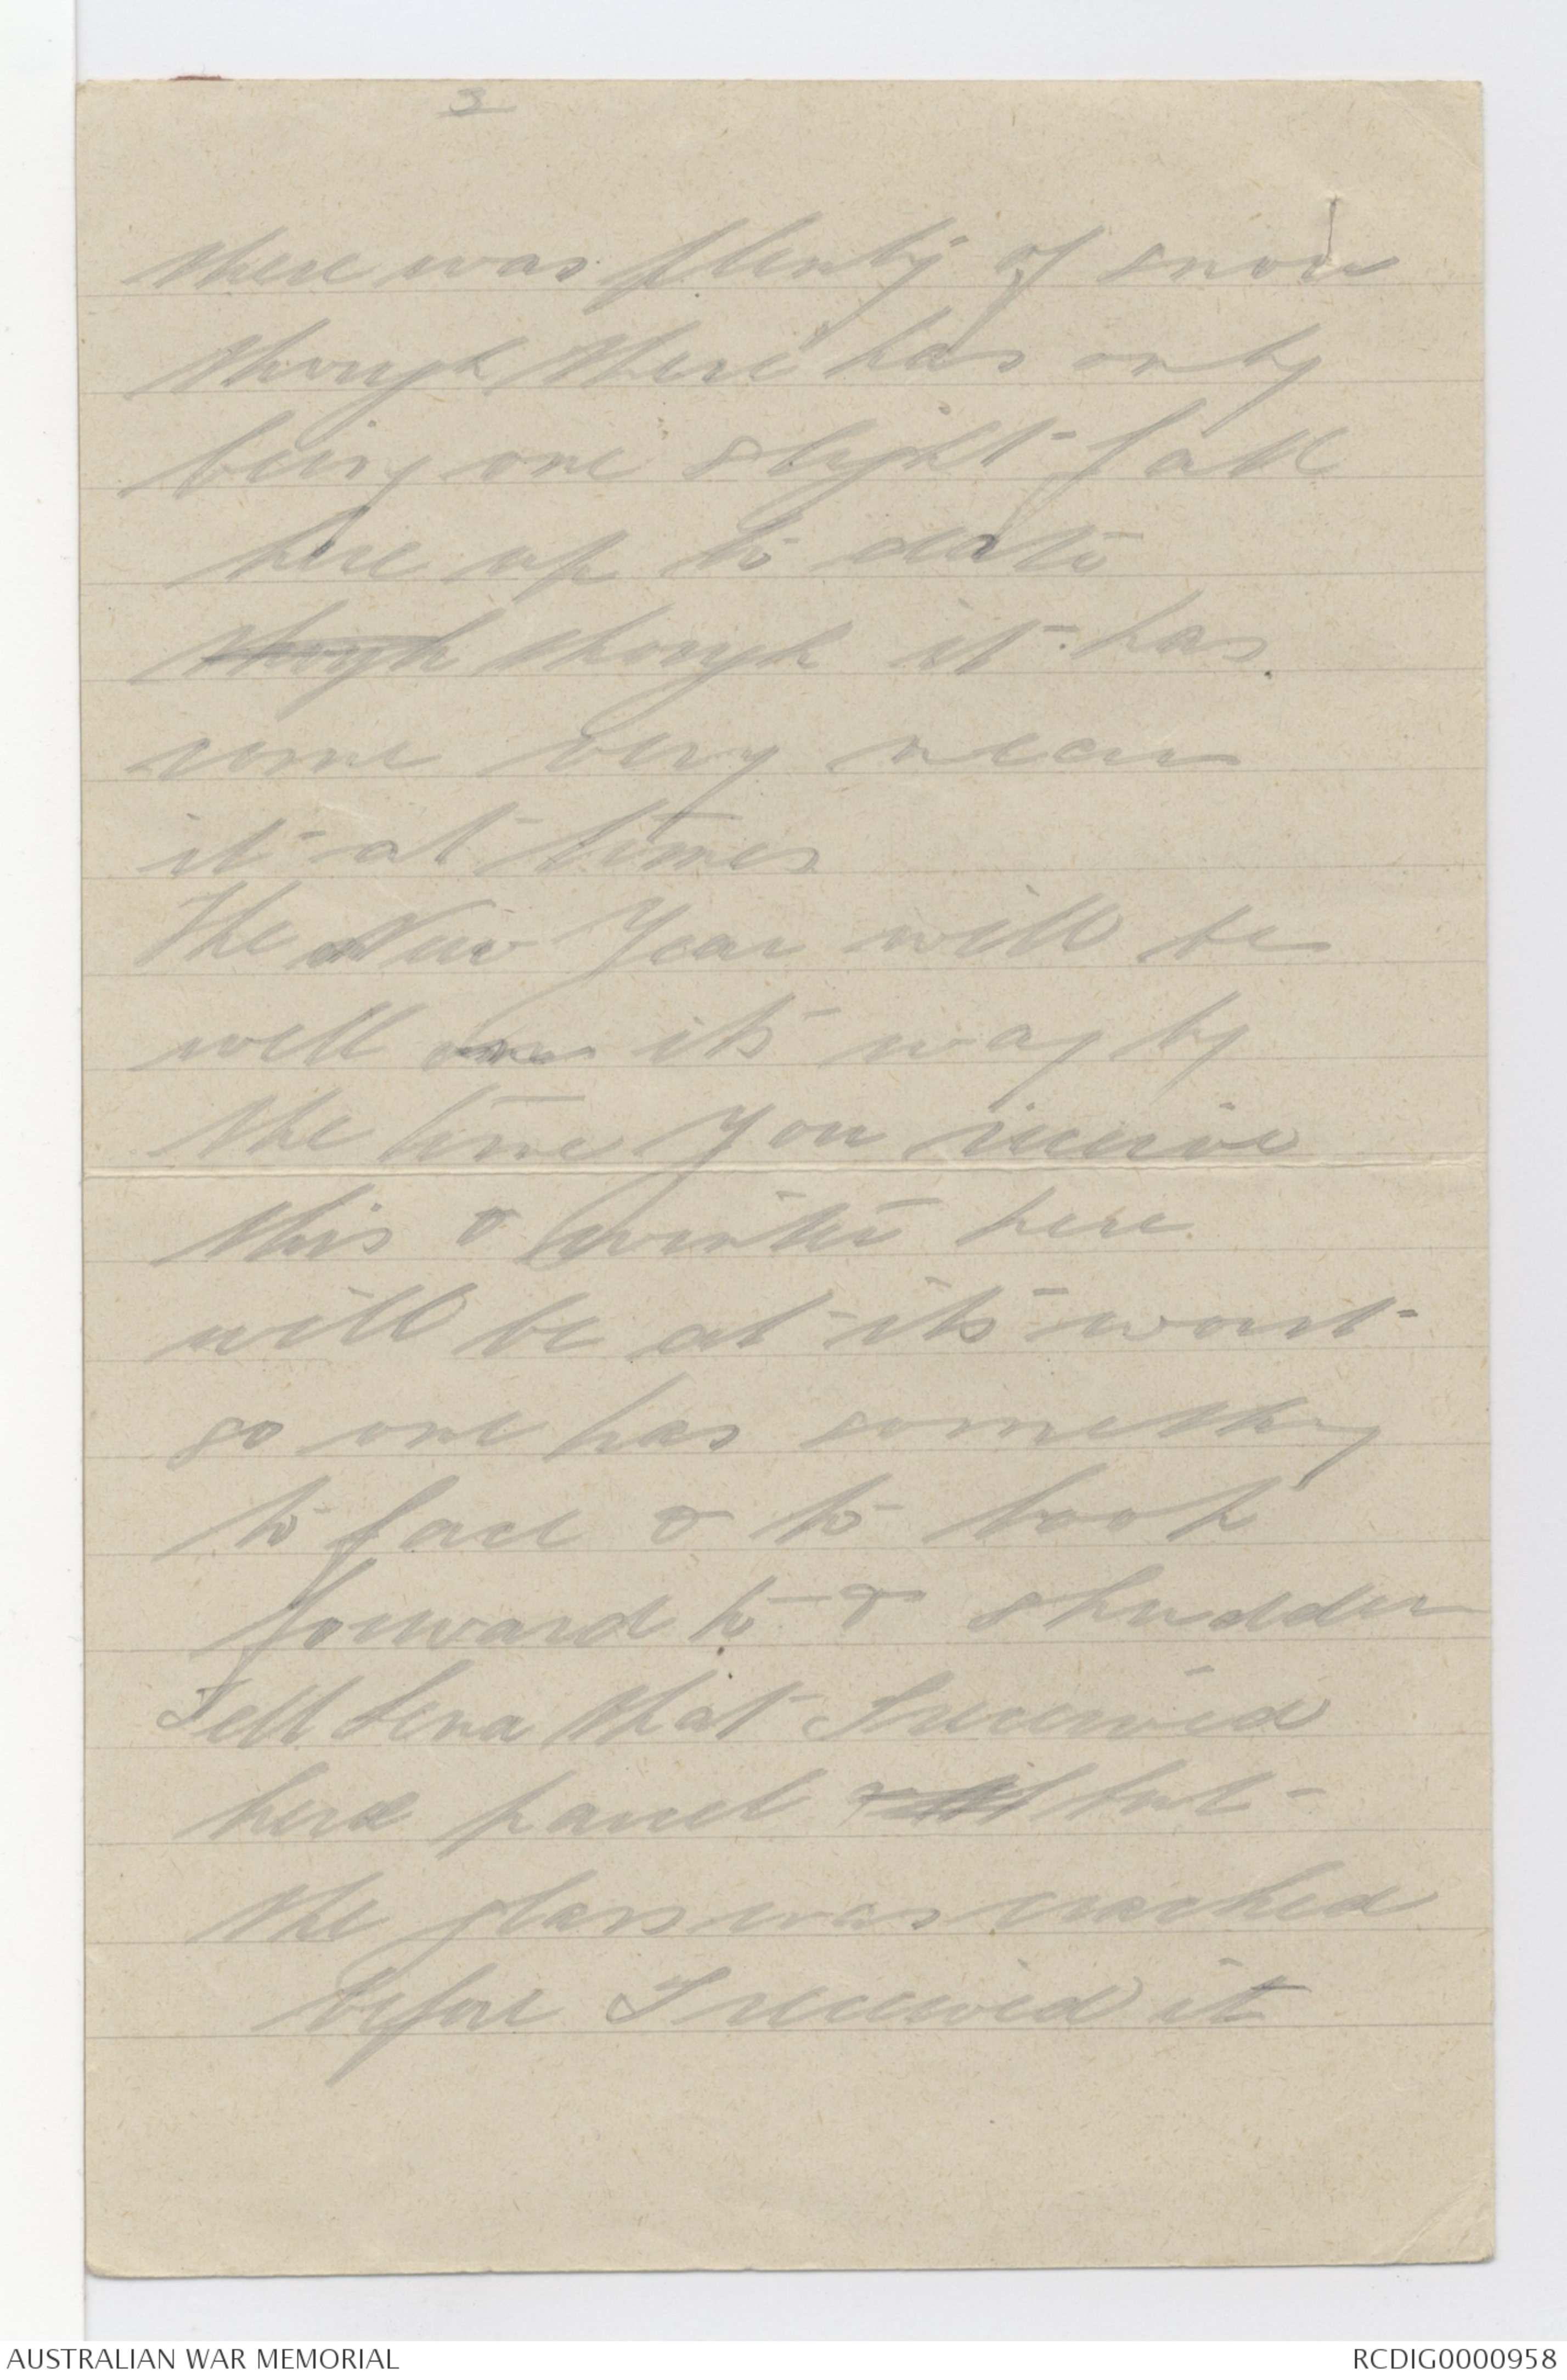 3
there was plenty of snow
though there has only
being one slight fall
here up to date
though though it has
come very near
it at times
The New Year will be
well on its way by
the time you receive
this & winter here
will be at its worst
so one has something
to face & to look
forward to & shudder
Tell Lena that I received
here parcel but
the glass was cracked
before I received it
AUSTRALIAN WAR MEMORIAL
RCDIG0000958